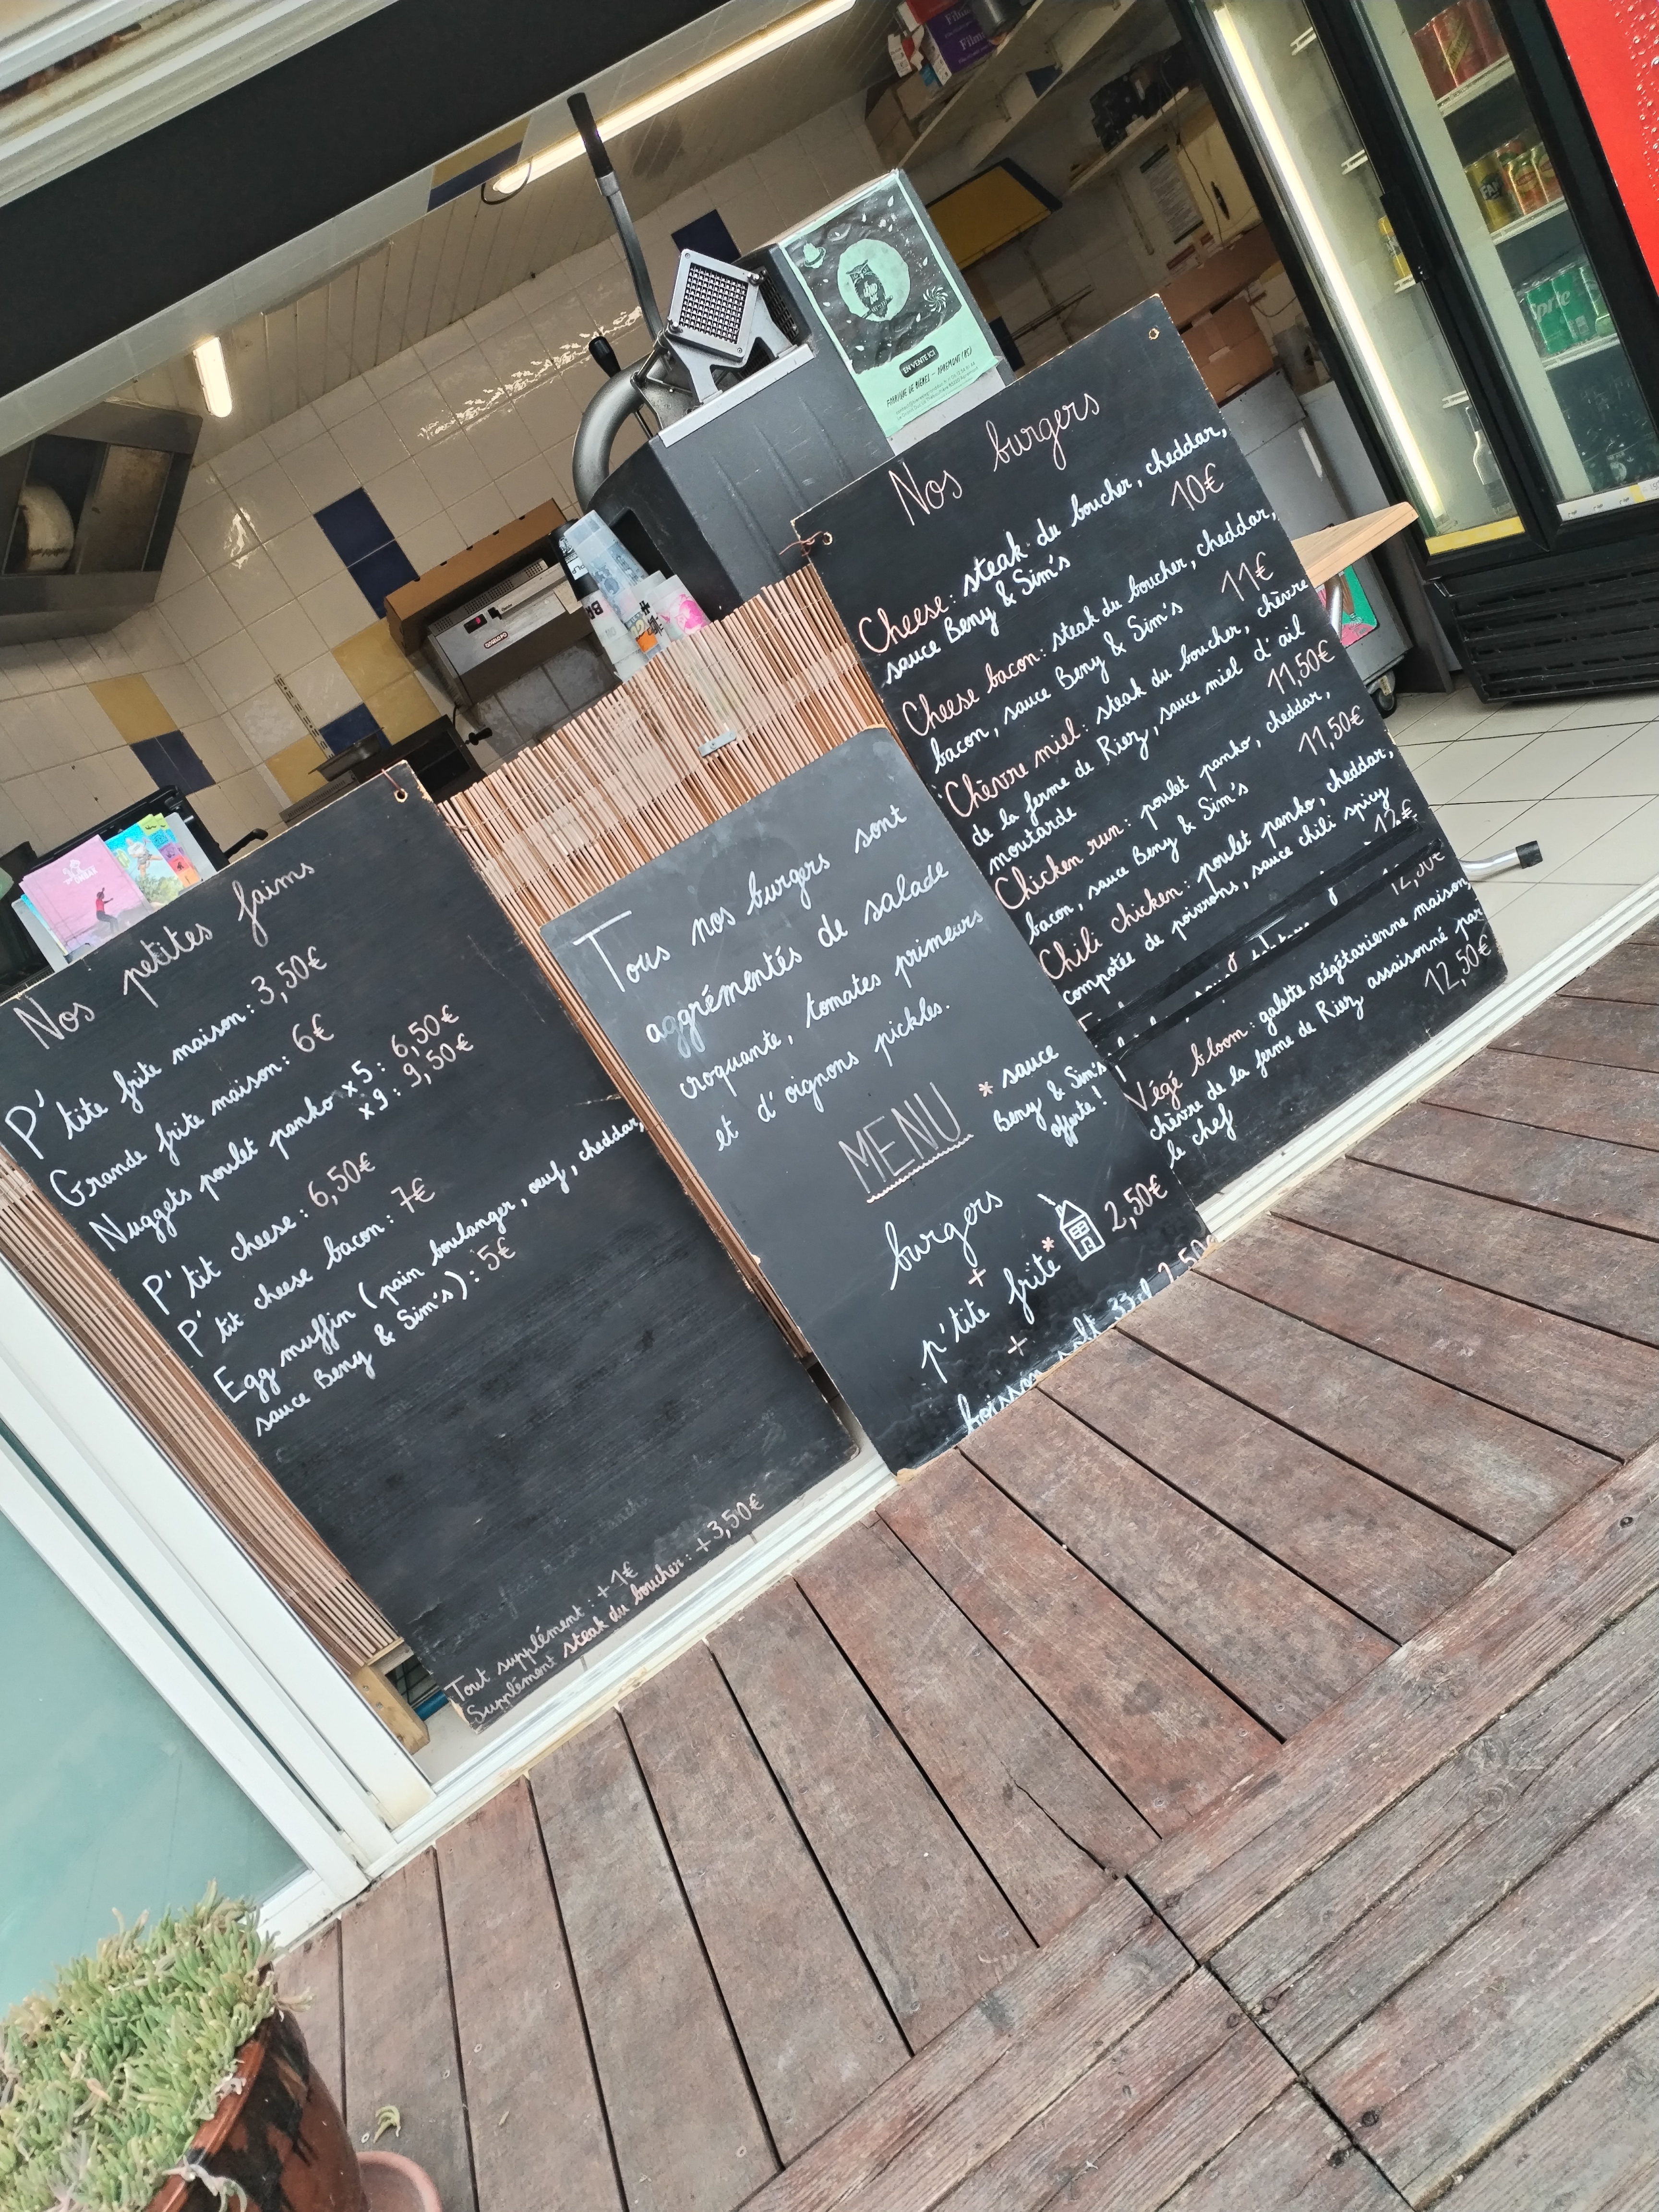 Nos petites faims
P'tite frite maison : 3,50€
Grande frite maison : 6€
Nuggets poulet panko x5 : 6,50€
x9 : 9,50€
P'tit cheese : 6,50€
P'tit cheese bacon : 7€
Egg muffin (pain boulanger, œuf, cheddar,
sauce Beny & Sim's) : 5€
Tout supplément : +1€
Supplément steak du boucher : +3,50€
Tous nos burgers sont
aggrémentés de salade
croquante, tomates primeurs
et d'oignons pickles.
MENU
* sauce
Beny & Sim's
offerte !
burgers
+
p'tite frite* 2,50€
+
boisson soft 33cl 2,50€
Nos burgers
Cheese : steak du boucher, cheddar,
sauce Beny & Sim's 10€
Cheese bacon : steak du boucher, cheddar,
bacon, sauce Beny & Sim's 11€
Chèvre miel : steak du boucher, chèvre
de la ferme de Riez, sauce miel d'ail
moutarde 11,50€
Chicken run : poulet panko, cheddar,
bacon, sauce Beny & Sim's 11,50€
Chili chicken : poulet panko, cheddar,
compotée de poivrons, sauce chili spicy
12€
Végé bloom : galette végétarienne maison,
chèvre de la ferme de Riez assaisonné par
le chef 12,50€
EN VENTE ICI